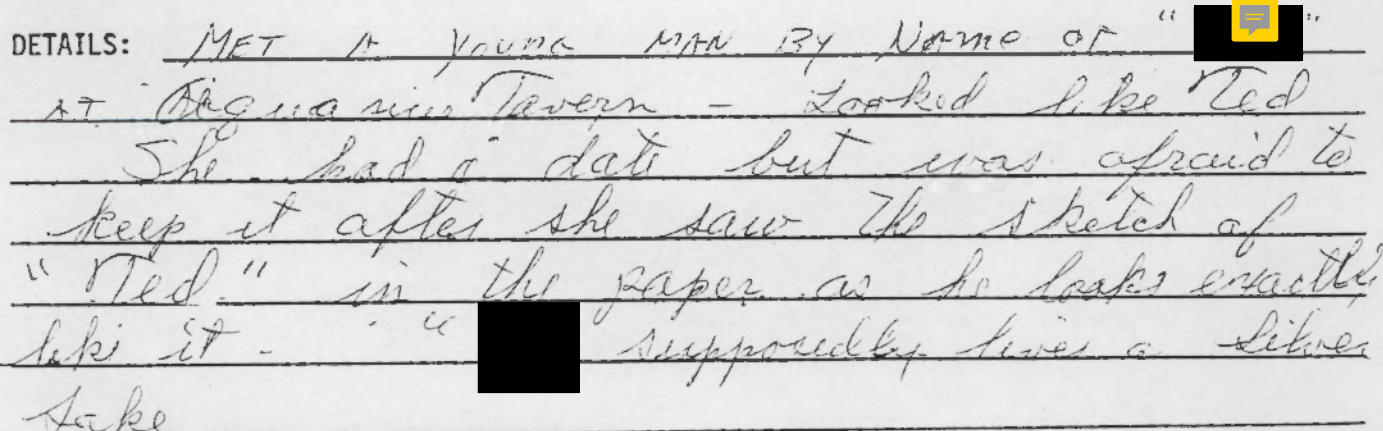 DETAILS: MET A YOUNG MAN BY NAME OF " "
AT Aquarius Tavern - Looked like Ted
She had a date but was afraid to
keep it after she saw the sketch of
"Ted" in the paper as he looks exactly
like it - " supposedly lives a Silver
Lake